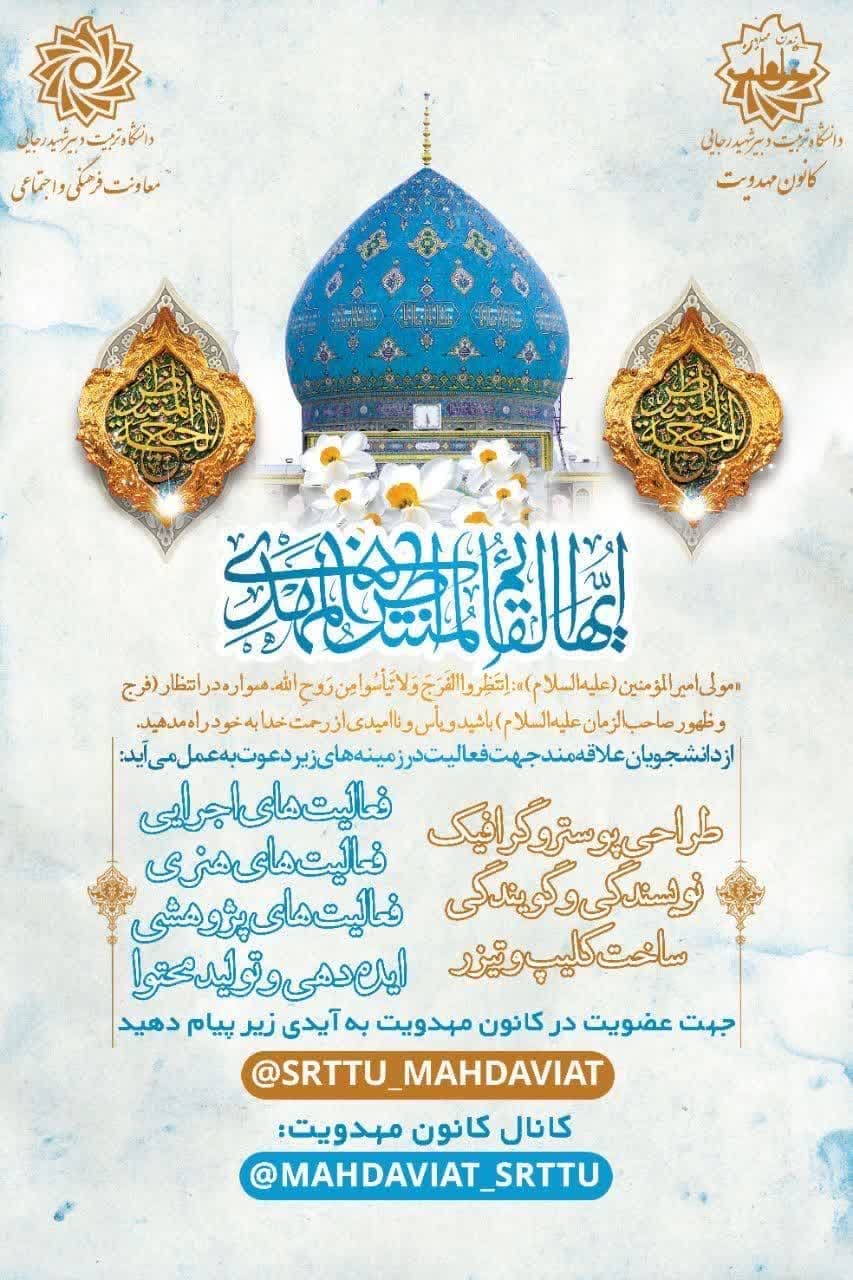 دانشگاه تربیت دبیر شهید رجایی
کانون مهدویت
دانشگاه تربیت دبیر شهید رجایی
معاونت فرهنگی و اجتماعی
الحجة المنتظر
الحجة المنتظر
ایُّها القائم المنتظر المهدی
«مولی امیرالمؤمنین (علیه السلام)»: اِنتَظِروا الفَرَجَ وَلا تَیأسُوا مِن رَوحِ الله. همواره در انتظار (فرج
و ظهور صاحب الزمان علیه السلام) باشید و یأس و ناامیدی از رحمت خدا به خود راه مدهید.
از دانشجویان علاقه مند جهت فعالیت در زمینه های زیر دعوت به عمل می آید:
طراحی پوستر و گرافیک
نویسندگی و گویندگی
ساخت کلیپ و تیزر
فعالیت های اجرایی
فعالیت های هنری
فعالیت های پژوهشی
ایده دهی و تولید محتوا
جهت عضویت در کانون مهدویت به آیدی زیر پیام دهید
@SRTTU_MAHDAVIAT
کانال کانون مهدویت:
@MAHDAVIAT_SRTTU